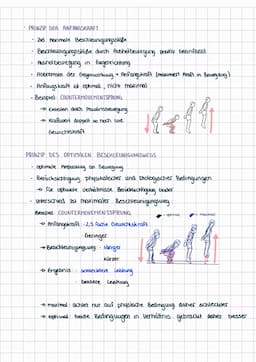 · PRINZIP DER ANFANGSKRAFT
- Ziel maximale Beschleunigungsstöße
- Beschleunigungsstöße durch Ausholbewegung positiv beeinflusst
- Ausholbewegung in Gegenrichtung
- Abbremsen der Gegenrichtung = Anfangskraft
- Anfangskraft ist optimal, nicht maximal
- Beispiel COUNTERMOVEMENTSPRUNG
→ Einleiten durch
→ Kraftwert doppelt so hoch wie
Gewichtskraft
PRINZIP DES OPTIMALEN BESCHLEUNIGUNGSWEGS
- optimale Anpassung an Bewegung
- Berücksichtigung physikalischer und biologischer Bedingungen
→ für optimale Verhältnisse Berücksichtigung beider
- Unterschied ist maximaler Beschleunigungsweg
Beispiel COUNTERMOVEMENTSPRUNG
= optimal = maximal
→ Anfangskraft: 2,5 fache Gewichtskraft
Geringer
→ Beschleunigungsweg: länger
kürzer
→ Ergebnis: schlechtere Leistung
bessere Leistung
→ maximal: achtet nur auf physische Bedingung daher schlechter
→ optimal: beide Bedingungen in Verhältnis gebracht daher besser